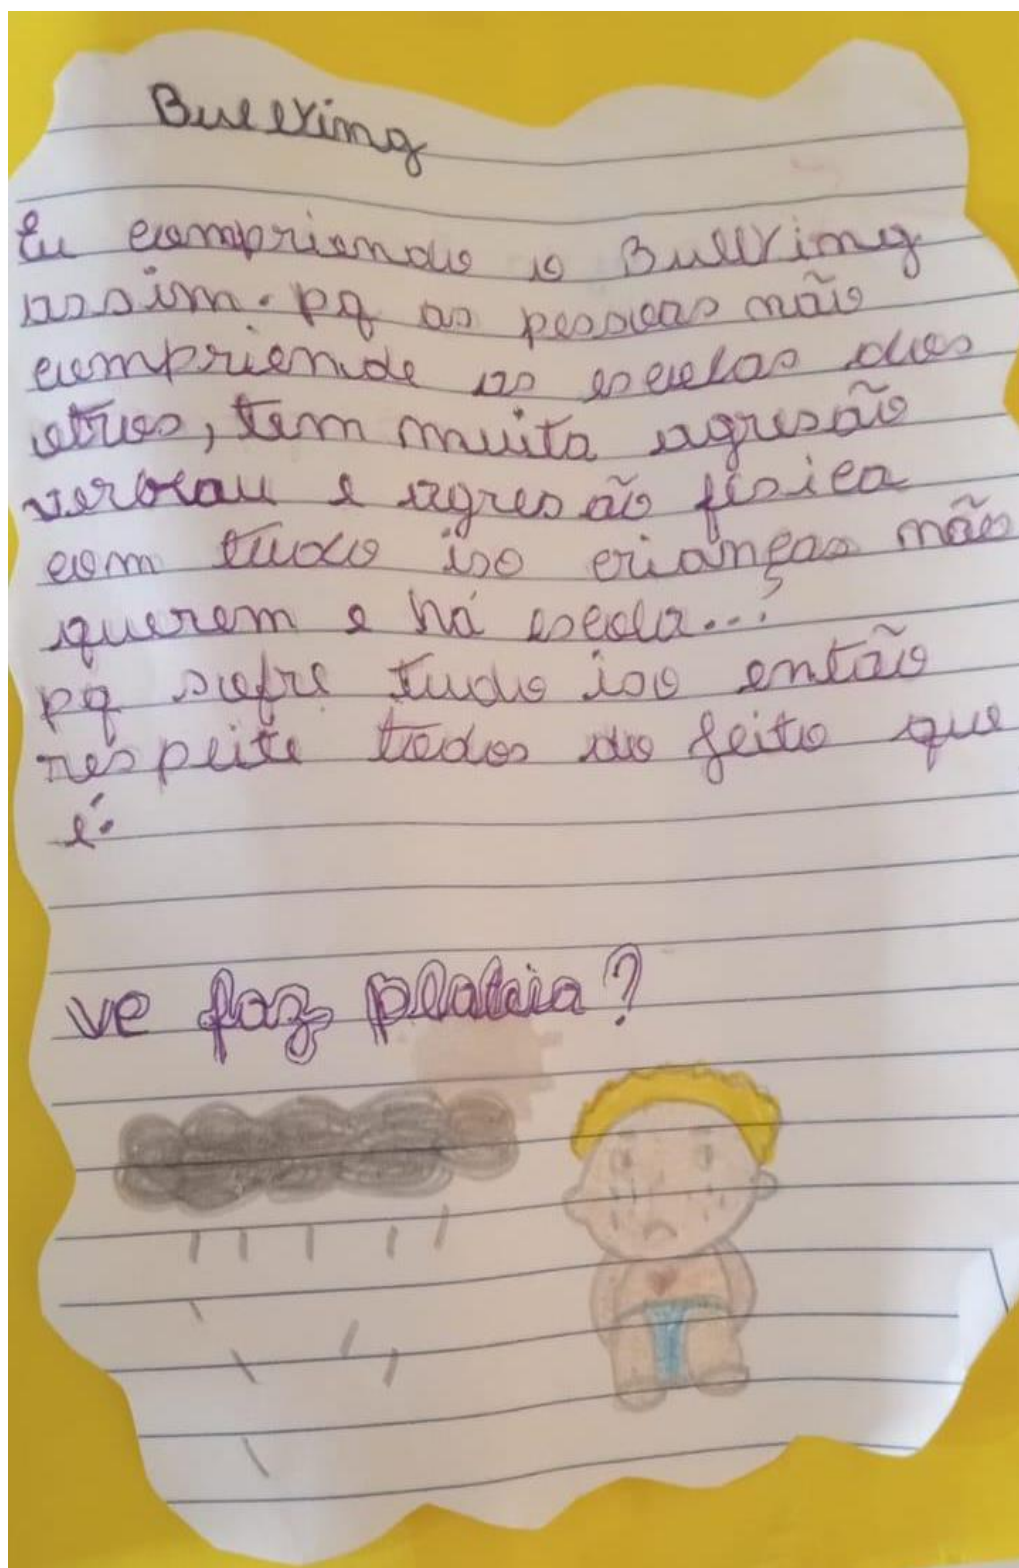 Bullying
Eu compriendo o Bullying
assim. pq as pessoas não
compriende as escolas dos
otros, tem muita agresão
verbau e agresão física
com tudo iso crianças não
querem e há escola...?
pq sofre tudo iso então
respeite todos do feito que
é.
ve faz plateia?